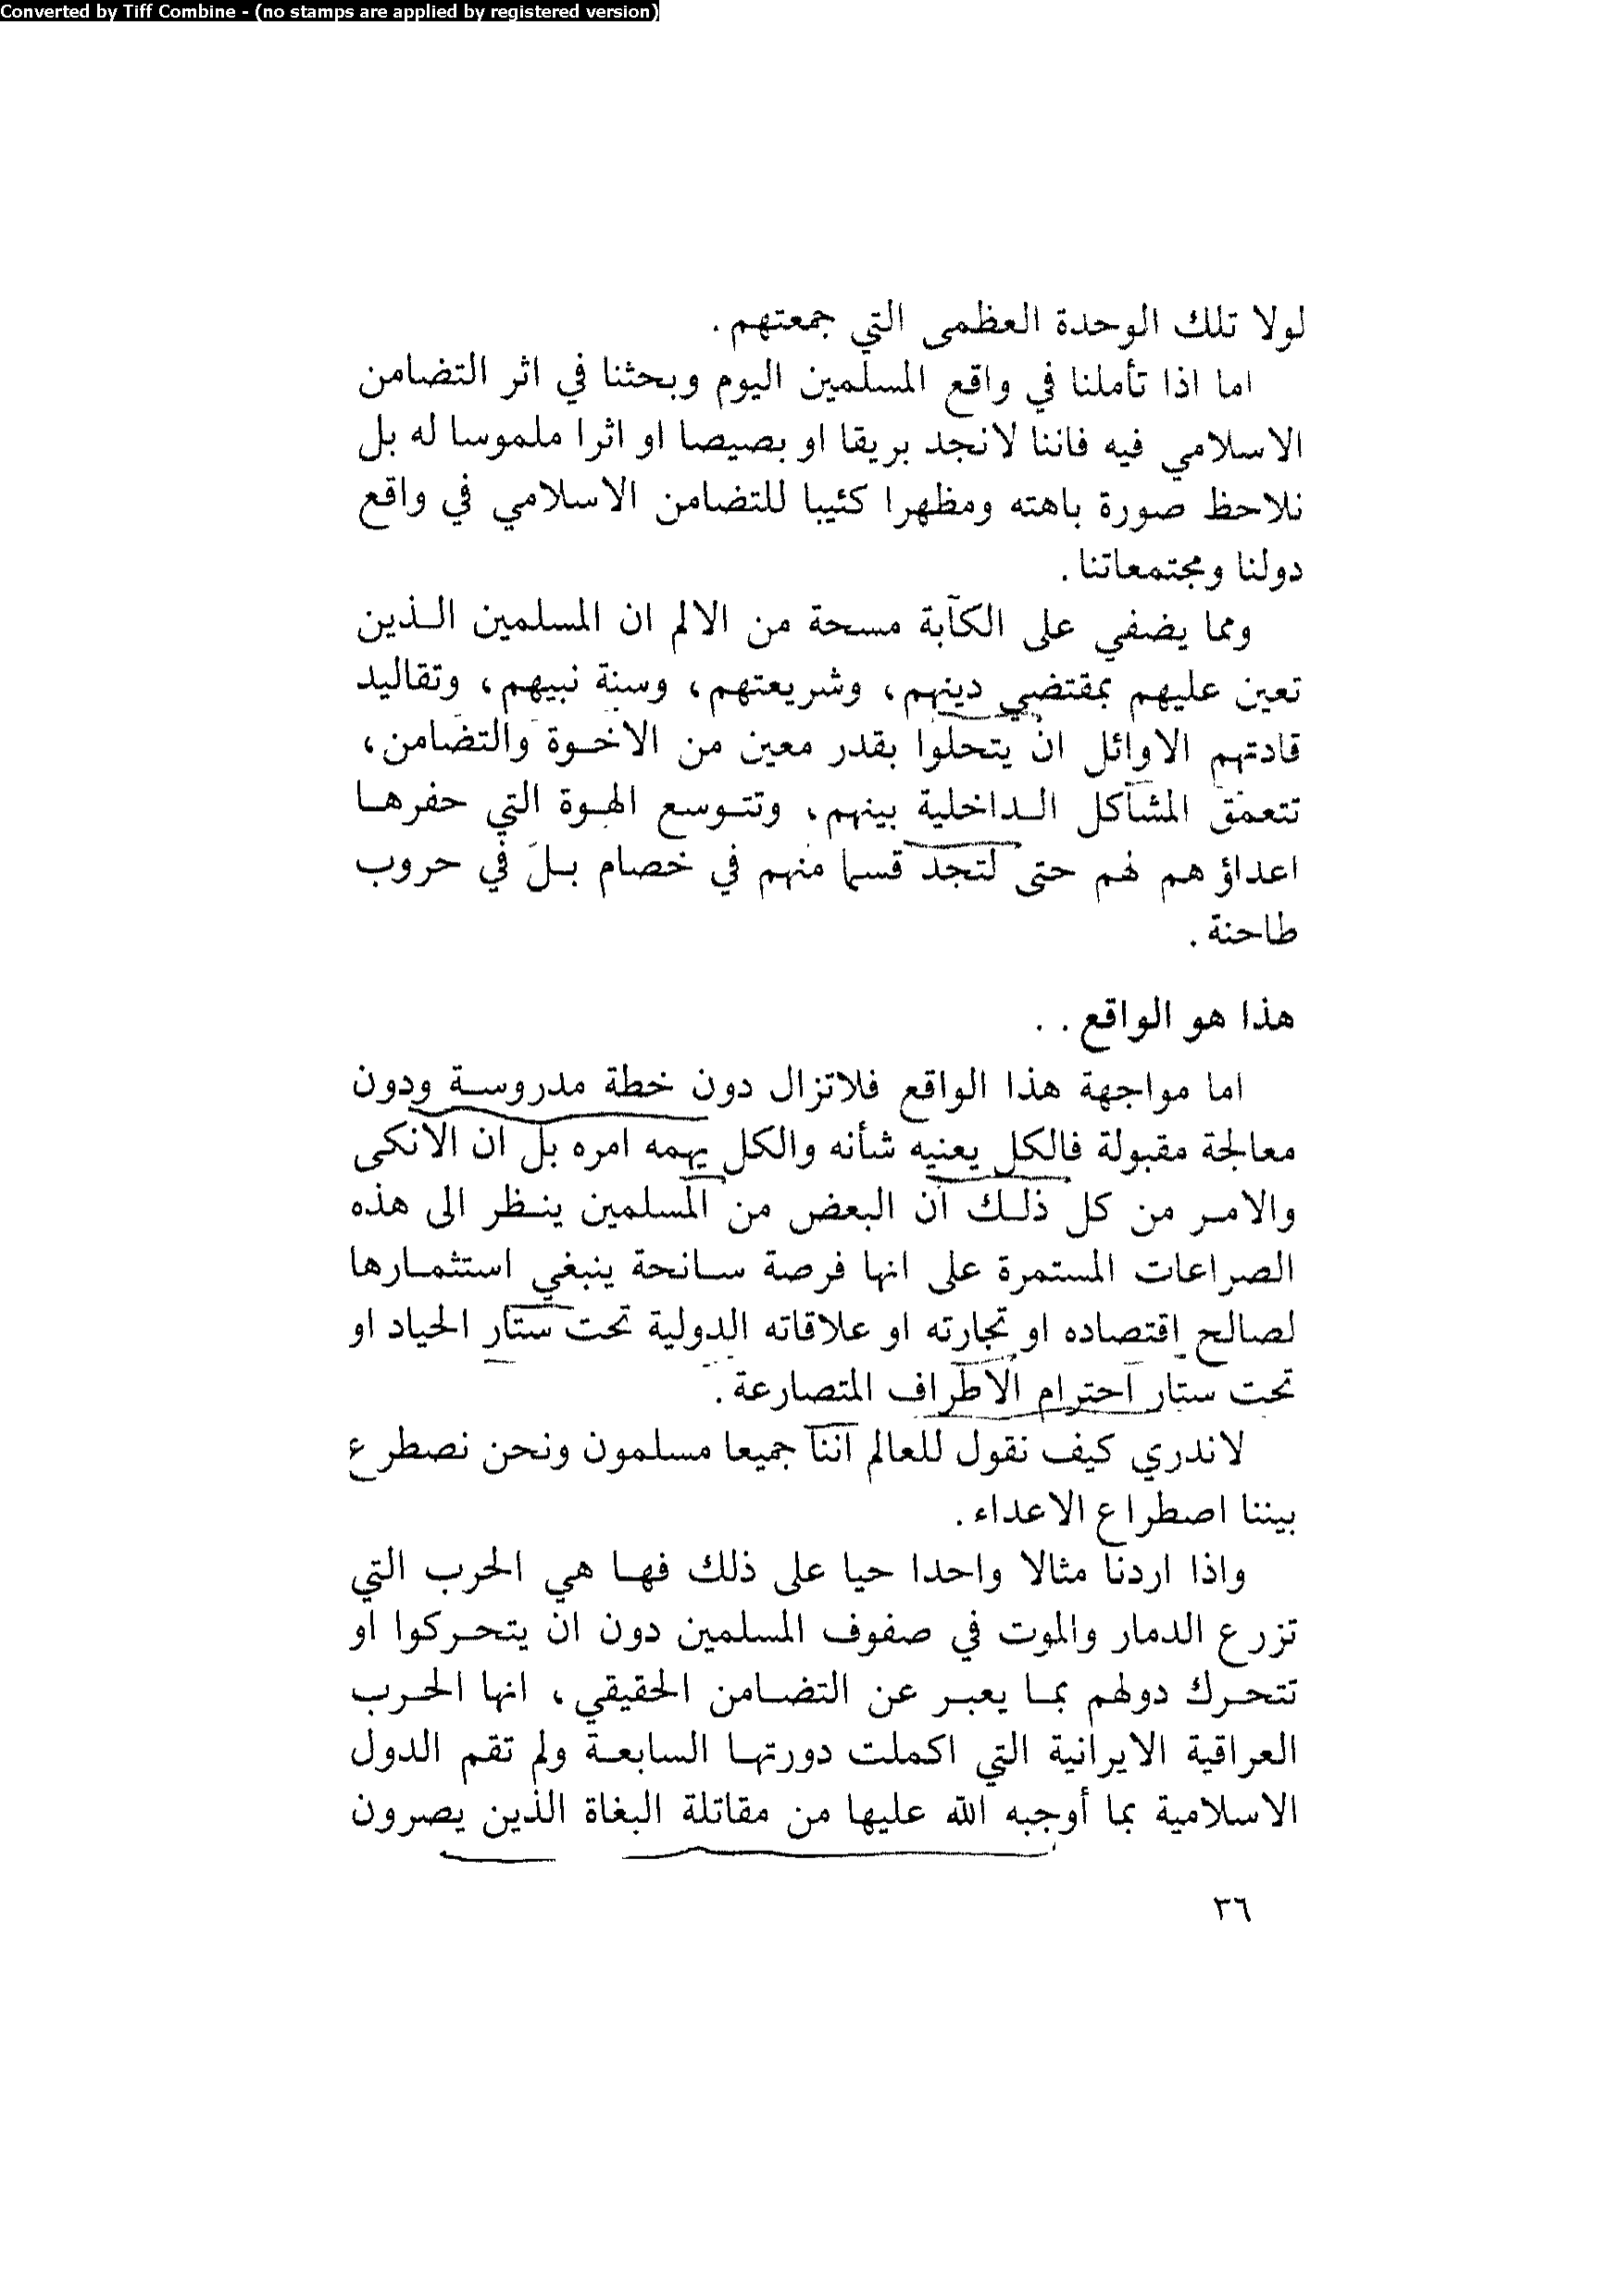 Converted by Tiff Combine - (no stamps are applied by registered version)
لولا تلك الوحدة العظمى التي جمعتهم .
اما اذا تأملنا في واقع المسلمين اليوم وبحثنا في اثر التضامن
الاسلامي فيه فاننا لانجد بريقا او بصيصا او اثرا ملموسا له بل
نلاحظ صورة باهته ومظهرا كئيبا للتضامن الاسلامي في واقع
دولنا ومجتمعاتنا .
ومما يضفي على الكآبة مسحة من الالم ان المسلمين الـذين
تعين عليهم بمقتضي دينهم، وشريعتهم، وسنة نبيهم، وتقاليد
قادتهم الاوائل ان يتحلوا بقدر معين من الاخـوة والتضامن،
تتعمق المشاكل الـداخلية بينهم، وتتـوسع الهـوة التي حفرهـا
اعداؤ هم لهم حتى لتجد قسما منهم في خصام بـل في حروب
طاحنة .
هذا هو الواقع . .
اما مواجهة هذا الواقع فلاتزال دون خطة مدروسـة ودون
معالجة مقبولة فالكل يعنيه شأنه والكل يهمه امره بل ان الانكى
والامـر من كل ذلـك ان البعض من المسلمين ينـظر الى هذه
الصراعات المستمرة على انها فرصة سـانحة ينبغي استثمـارها
لصالح اقتصاده او تجارته او علاقاته الدولية تحت ستار الحياد او
تحت ستار احترام الاطراف المتصارعة .
لاندري كيف نقول للعالم اننا جميعا مسلمون ونحن نصطرع
بيننا اصطراع الاعداء .
واذا اردنا مثالا واحدا حيا على ذلك فهـا هي الحرب التي
تزرع الدمار والموت في صفوف المسلمين دون ان يتحـركوا او
تتحـرك دولهم بمـا يعبـر عن التضـامن الحقيقي، انها الحـرب
العراقية الايرانية التي اكملت دورتهـا السابعـة ولم تقم الدول
الاسلامية بما أوجبه الله عليها من مقاتلة البغاة الذين يصرون
٣٦